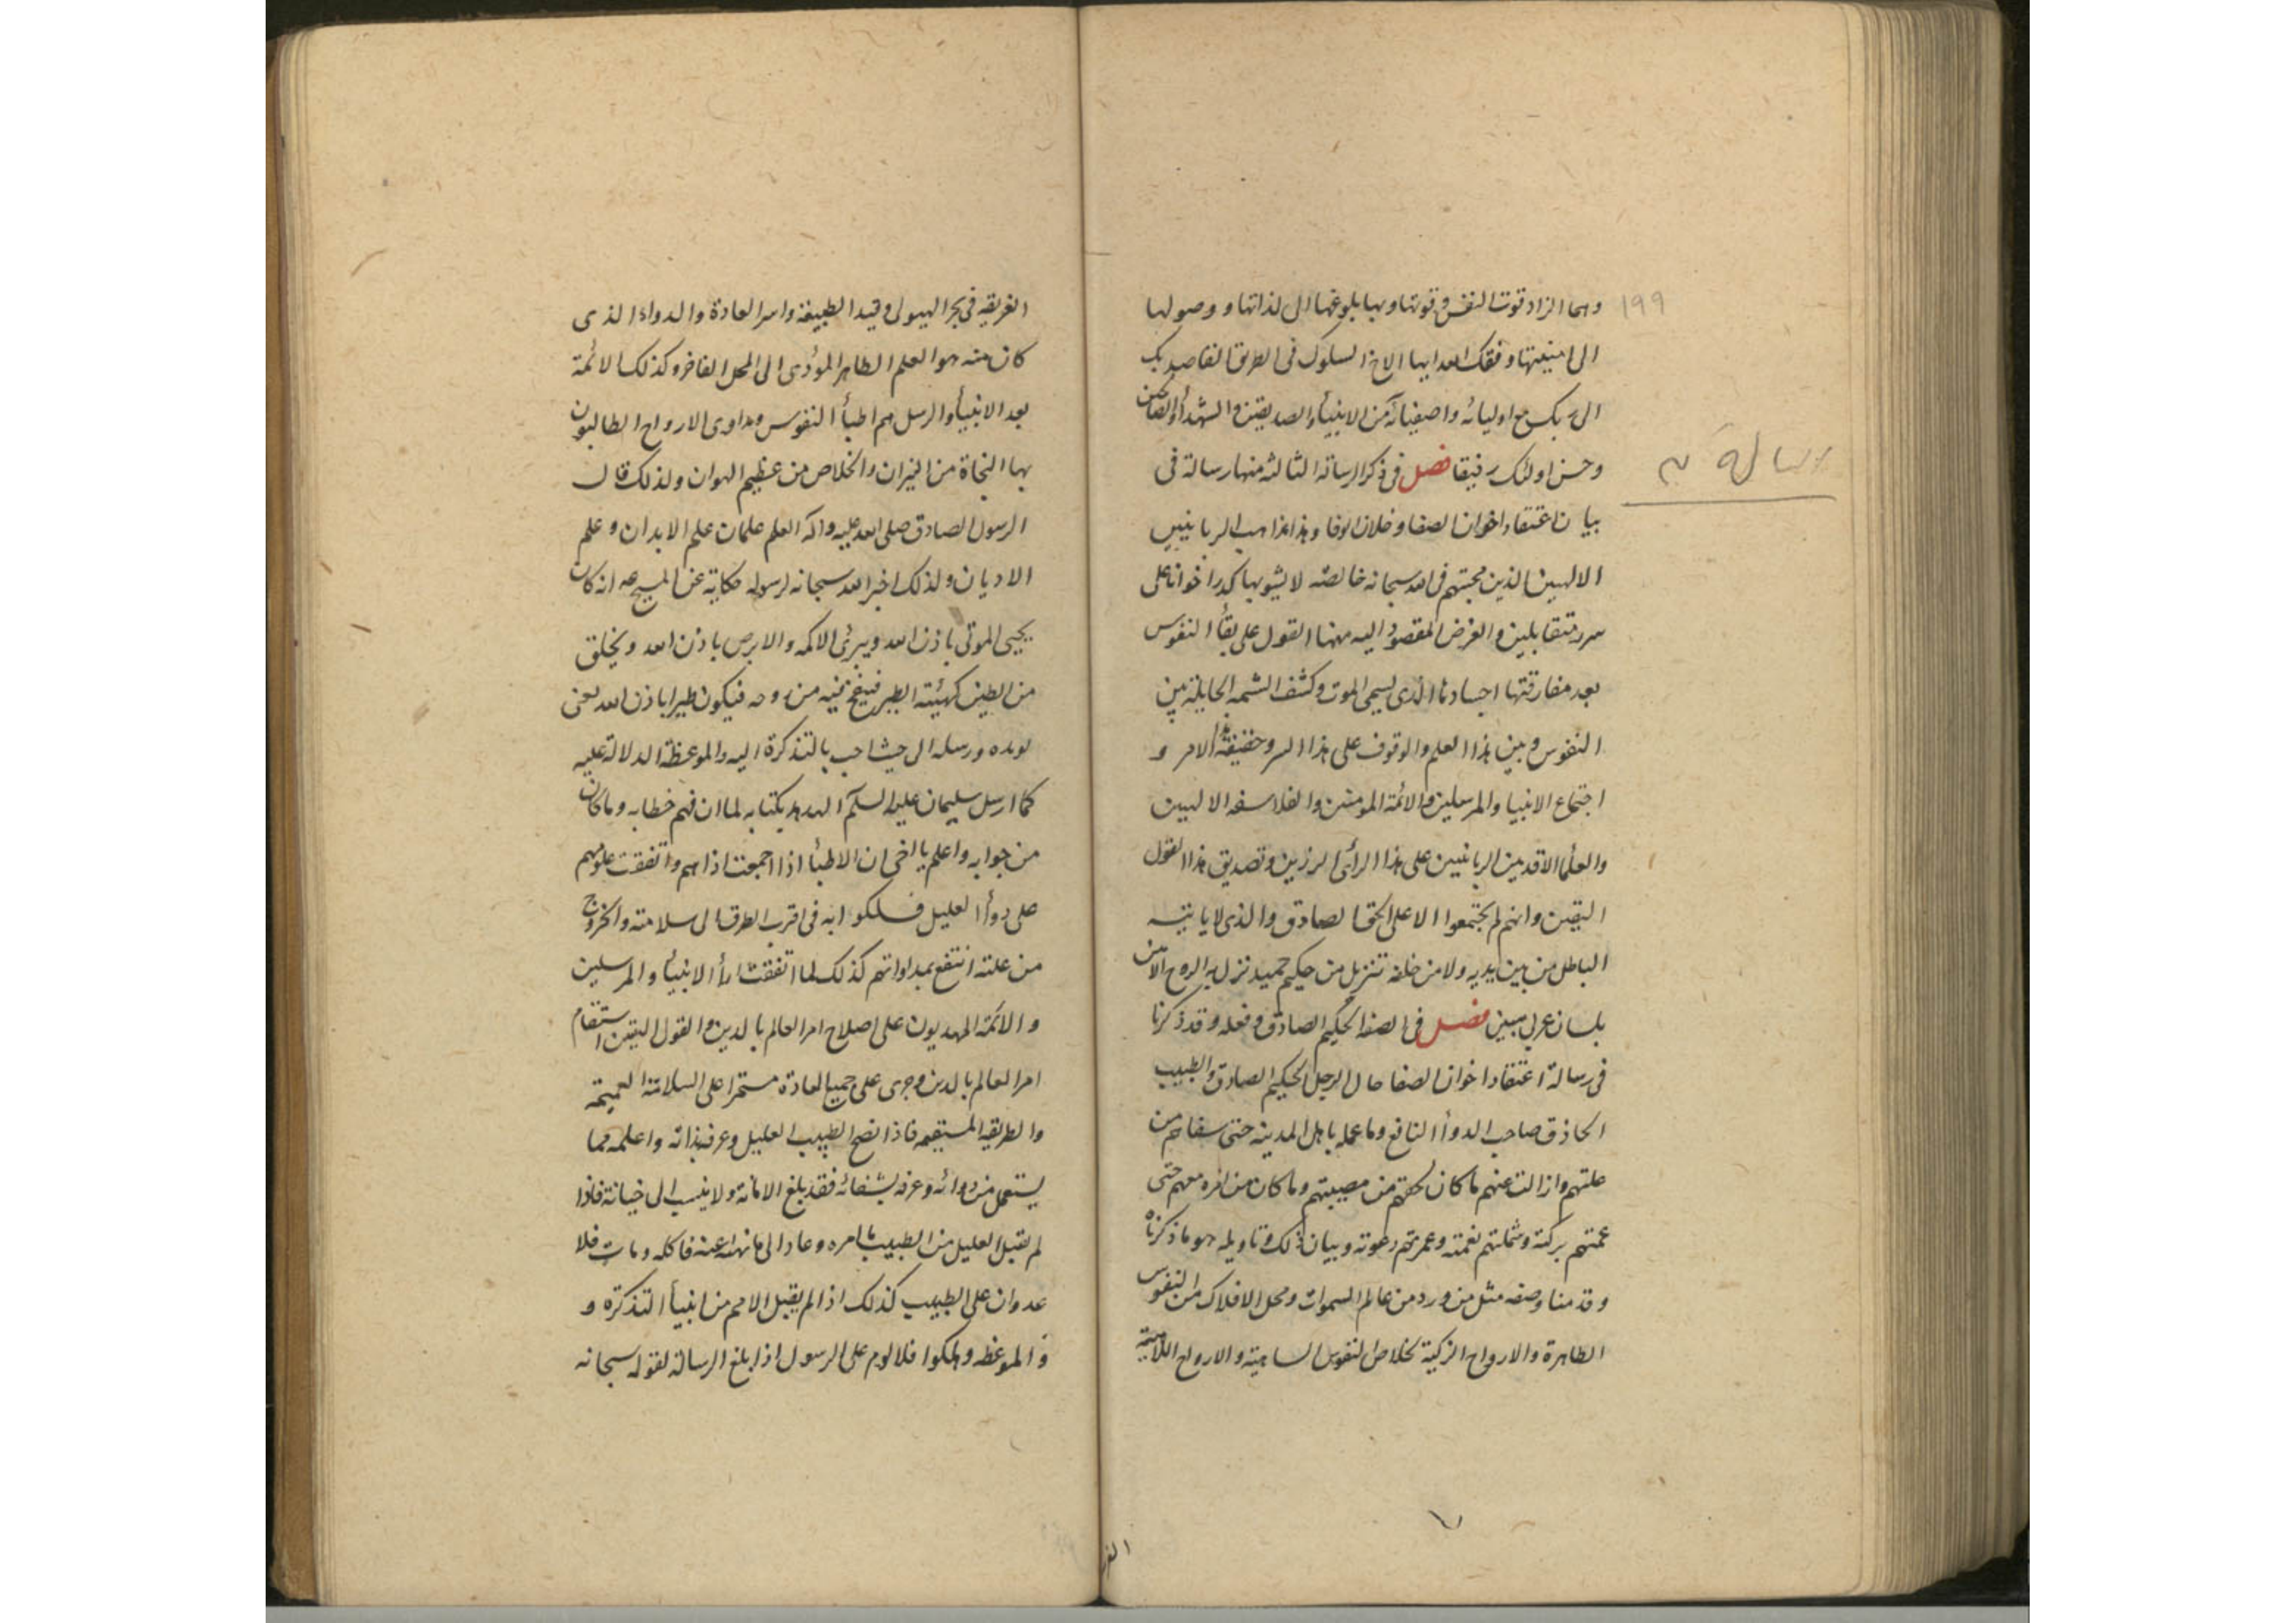 ١٩٩
وهما الزاد قوت النفس وقوتها وبها بلوغها الى لذاتها ووصولها
الى امنيتها وفقك الله ايها الاخ السلوك فى الطريق القاصد بك
الى ربك مع اوليائه واصفيائه من الانبيأ والصديقين والشهدأ والصالحين
وحسن اولئك رفيقا فصل فى ذكر الرسالة الثالثه منها رسالة فى
بيان اعتقاد اخوان الصفا وخلان الوفا وهذا مذاهب الربانيين
الالهين الذين محبتهم فى الله سبحانه خالصه لا يشوبها كدر اخوانا على
سرر متقابلين والغرض المقصود اليه مهنا القول على بقأ النفوس
بعد مفارقتها اجسادنا الذى يسمى الموت وكشف الشبهه الحايلة بين
النفوس وبين هذا العلم والوقوف على هذا السر وحقيقة هذا الامر و
اجتماع الانبيا والمرسلين والائمة المومنين والفلاسفه الالهيين
والعلمأ الاقدمين الربانيين على هذا الرأى الرزين وتصديق هذا القول
اليقين وانهم لم يجتمعوا الا على الحق الصادق والذى لا ياتيه
الباطل من بين يديه ولا من خلفه تنزيل من حكيم حميد نزل به الروح الامين
بلسان عربى مبين فصل فى الصفة الحكيم الصادق وفعله وقد ذكرنا
فى رسالة اعتقاد اخوان الصفا حال الرجل الحكيم الصادق والطبيب
الحاذق صاحب الدوأ النافع وما عمله باهل المدينه حتى شفاهم من
علتهم وازالت عنهم ما كان لحقتهم من مصيبتهم وما كان من امره معهم حتى
عمتهم بركته وشملتهم نعمته وعمرتهم دعوته وبيان ذلك وتاويله هو ما ذكرناه
وقدمنا وصفه مثل من ورد من عالم السموات ومحل الافلاك من النفوس
الطاهرة والارواح الزكية لخلاص النفوس الساهية والارواح اللاهية
الرسالة ٣
الغر
الغريقه فى بحر الهيولى وقيد الطبيعة واسر العادة والدواء الذى
كان منه هو العلم الطاهر المؤدى الى المحل الفاخر وكذلك الائمة
بعد الانبيأ والرسل هم اطبأ النفوس ومداوى الارواح الطالبون
بها النجاة من النيران والخلاص من عظيم الهوان ولذلك قال
الرسول الصادق صلى الله عليه واله العلم علمان علم الابدان وعلم
الاديان ولذلك اخبر الله سبحانه لرسوله حكاية عن المسيح عه انه كان
يحيى الموتى باذن الله ويبرئ الاكمه والابرص باذن الله ويخلق
من الطين كهيئة الطير فينفخ فيه من روحه فيكون طيرا باذن الله يعنى
بوعده ورسله الى حيث احب بالتذكرة اليه والموعظة الدلالة عليه
كما ارسل سليمان عليه السلم الهدهد بكتابه لما ان فهم خطابه وما كان
من جوابه واعلم يا اخى ان الاطبأ اذا اجمعت اذاهم واتفقت علومهم
على دوأ العليل فسلكوا به فى اقرب الطرق الى سلامته والخروج
من علته انتفع بمداواتهم كذلك لما اتفقت ارأ الانبيأ والمرسلين
والائمه المهديون على اصلاح امر العالم بالدين والقول اليقين استقام
امر العالم بالدين وجرى على جميع العادة مستمرا على السلامة العميمة
والطريقه المستقيمه فاذا نصح الطبيب العليل وعرف بذاته واعلمه مما
يستعمل من دوائه وعرفه بشفائه فقد بلغ الامانة ولا ينسب الى خيانة فاذا
لم يقبل العليل من الطبيب ما امره وعاد الى ما نهاه عنه فاكله ومات فلا
عدوان على الطبيب كذلك اذا لم يقبل الامم من انبيأ التذكرة و
والموعظه وهلكوا فلا لوم على الرسول اذا بلغ الرسالة لقوله سبحانه